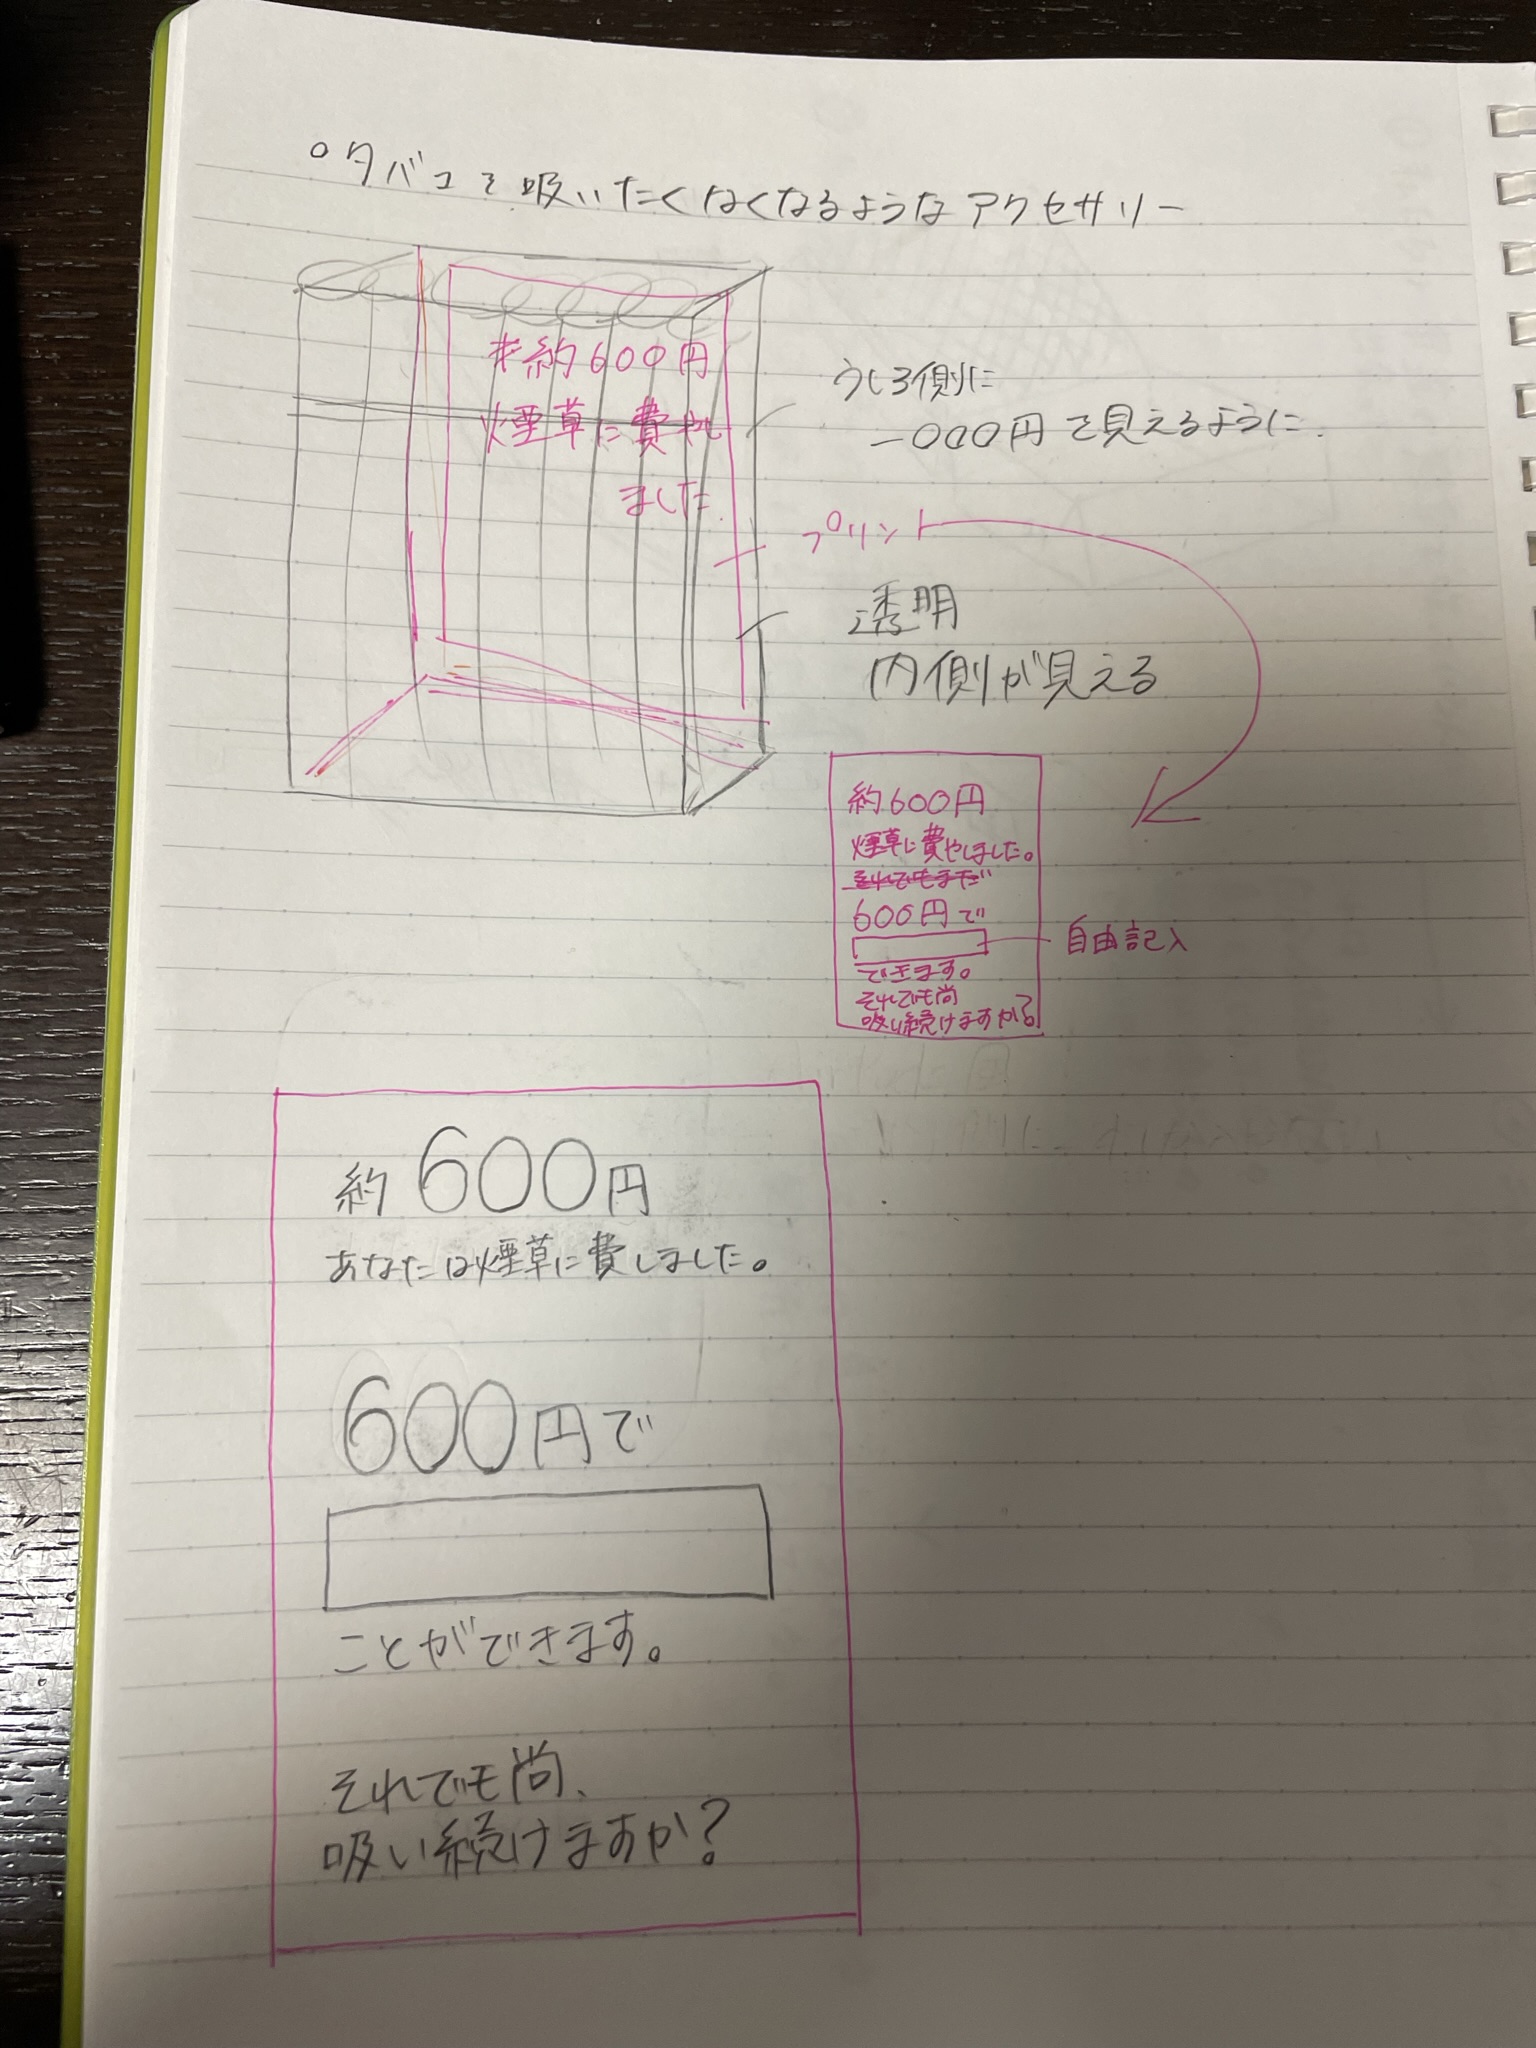 ○タバコを吸いたくなくなるようなアクセサリー
約600円
煙草に費やし
ました.
うしろ側に
-000円で見えるように.
プリント
透明
内側が見える
約600円
煙草に費やしました。
それでもまだ
600円で
自由記入
できます。
それでも尚
吸い続けますか?
約600円
あなたは煙草に費しました。
600円で
ことができます。
それでも尚、
吸い続けますか?